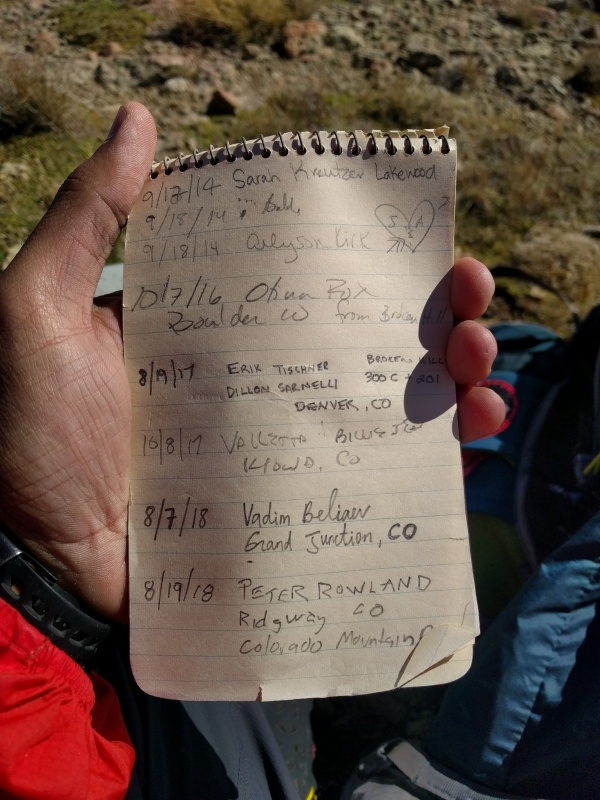 9/17/14 Sarah Kreutzer Lakewood
9/18/14
9/18/14 Kirk
10/7/16
Boulder CO from Broken Hill
8/9/17 ERIK TISCHNER BROKEN HILL
DILLON SARNELLI 300 C + 201
DENVER, CO
10/8/17
CO
8/7/18 Vadim Beliaev
Grand Junction, CO
8/19/18 PETER ROWLAND
Ridgway CO
Colorado Mountain